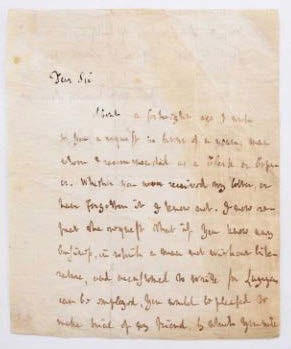 Dear Sir
About a fortnight ago I wrote
to you a request in favour of a young man
whom I recommended as a Clerk or Copy-
er. Whether you received my letter or
have forgotten it I know not. I now re-
peat the request that if you know any
business, in which a man not without lite-
rature, and accustomed to write for
can be employed, You would be pleased to
make trial of my friend, by which You will